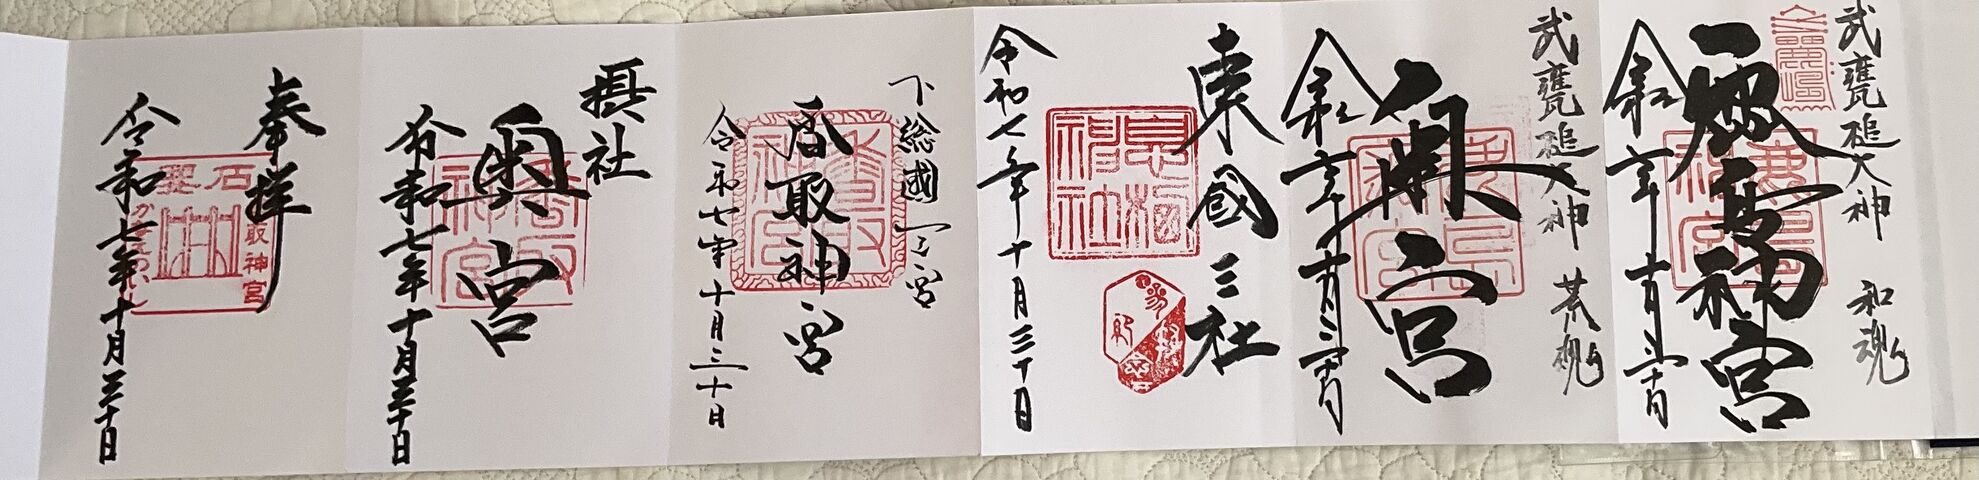 武甕槌大神 和魂
鹿島神宮
令和七年十月三十日
武甕槌大神 荒魂
奥宮
令和七年十月三十日
東國三社
息栖神社
令和七年十月三十日
下総國一之宮
香取神宮
香取神宮
令和七年十月三十日
摂社
奥宮
香取神宮
令和七年十月三十日
奉拝
石
要
取神宮
令和七年十月三十日